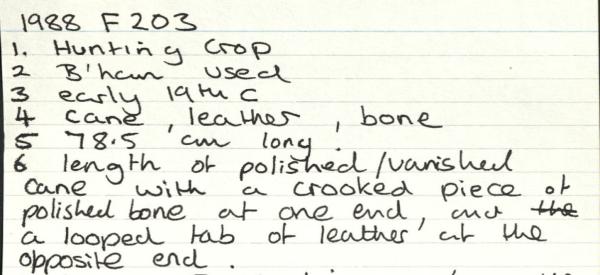 1988 F203
1. Hunting crop
2 B'ham used
3 early 19th C
4 cane, leather, bone
5 78.5 cm long.
6 length of polished/vanished
cane with a crooked piece of
polished bone at one end, and the
a looped tab of leather at the
opposite end.